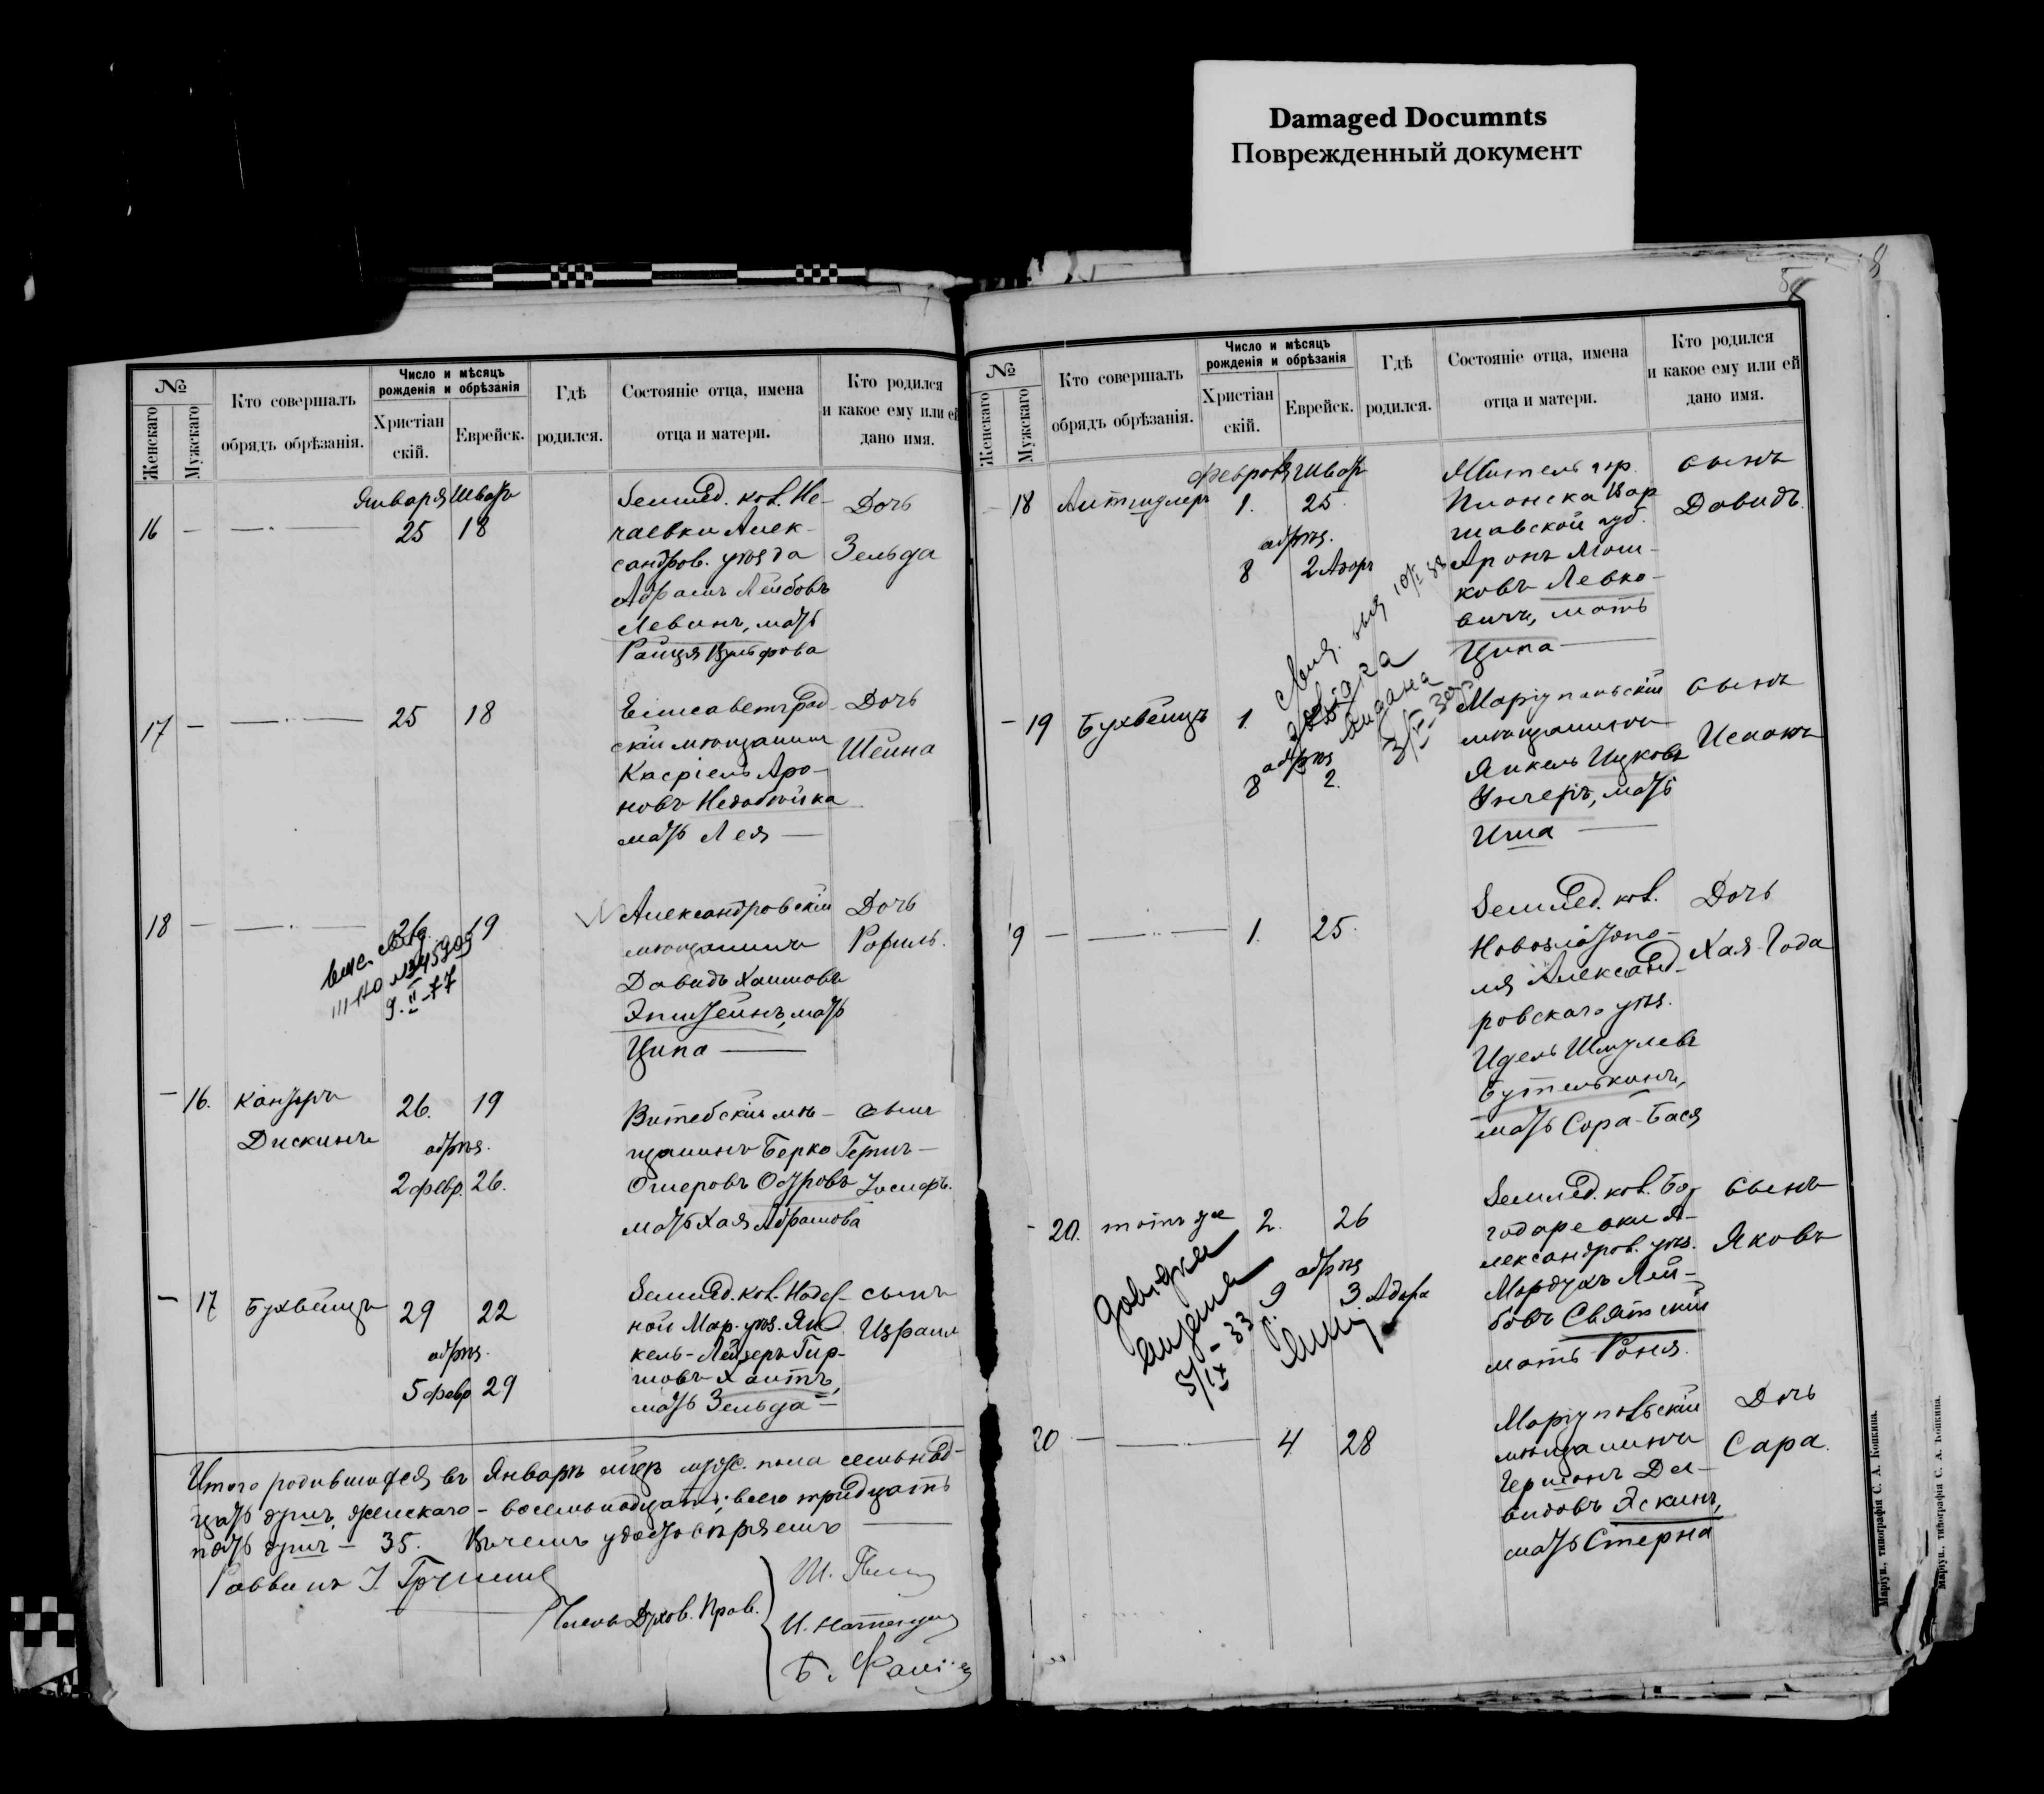 Damaged Documnts
Поврежденный документ
8
№
Женскаго
Мужскаго
Кто совершалъ
обрядъ обрѣзанія.
Число и мѣсяцъ
рожденія и обрѣзанія
Христіан
скій.
Еврейск.
Гдѣ
родился.
Состояніе отца, имена
отца и матери.
Кто родился
и какое ему или ей
дано имя.
Января Шватъ
16 — —·— 25 18
Землед. кол. Не-
чаевки Алек-
сандров. уѣзда
Абрамъ Лейбовъ
Левинъ, мать
Райця Вульфова
Дочь
Зельда
17 — —·— 25 18
Елисаветград-
скій мѣщанинъ
Касріель Аро-
новъ
мать Лея —
Дочь
Шейна
18 — —·— 26 19
9.II-77
Александровскій
мѣщанинъ
Давидъ Хаимовъ
Эпштейнъ, мать
Ципа —
Дочь
Рахиль.
— 16. Канторъ
Дискинъ
26. 19
обрѣз.
2 февр. 26.
Витебскій мѣ-
щанинъ Берко Герш-
Ошеровъ Островъ
мать Хая Абрамова
сынъ
Іосифъ.
— 17 Бухбейндъ 29 22
обрѣз.
5 февр 29
Землед. кол. Надеж-
ной Мар. уѣз. Ян-
кель-Лейзеръ Гир-
шовъ Хаитъ,
мать Зельда —
сынъ
Израиль
Итого родившихся въ Январѣ мѣс. муж. пола семьнад-
цать душъ, женскаго – восемьнадцать; всего тридцать
пять душъ – 35. Въ чемъ удостовѣряемъ
Раввинъ
Члены Духов. Прав.
№
Женскаго
Мужскаго
Кто совершалъ
обрядъ обрѣзанія.
Число и мѣсяцъ
рожденія и обрѣзанія
Христіан
скій.
Еврейск.
Гдѣ
родился.
Состояніе отца, имена
отца и матери.
Кто родился
и какое ему или ей
дано имя.
Февраля Шватъ
— 18 1. 25.
обрѣз.
8 2 Адоръ
Житель гор.
Плонска Вар
шавской губ.
Аронъ Мош-
ковъ Левко-
вичъ, мать
Ципа —
сынъ
Давидъ.
— 19 Бухбейндъ 1. 25
обрѣз
8 2.
Маріупольскій
мѣщанинъ
Янкель Ицковъ
Унгеръ, мать
сынъ
Исаакъ
19 — —·— 1. 25.
Землед. кол.
Новозлатопо-
ля Александ-
ровскаго уѣз.
Идель Шмулевъ
Бутелькинъ,
мать Сора-Бася
Дочь
Хая-Года
— 20. тотъ же 2. 26
обрѣз
9 3. Адора
Землед. кол. Бог-
лександров. уѣз.
Мордухъ Лей-
бовъ Святскій
мать Роня.
сынъ
Яковъ
20 — —·— 4 28
Маріупольскій
мѣщанинъ
Гершонъ Да-
видовъ Эскинъ,
мать Стерна
Дочь
Сара.
Маріуп., типографія С. А. Копкина.
Маріуп., типографія С. А. Копкина.